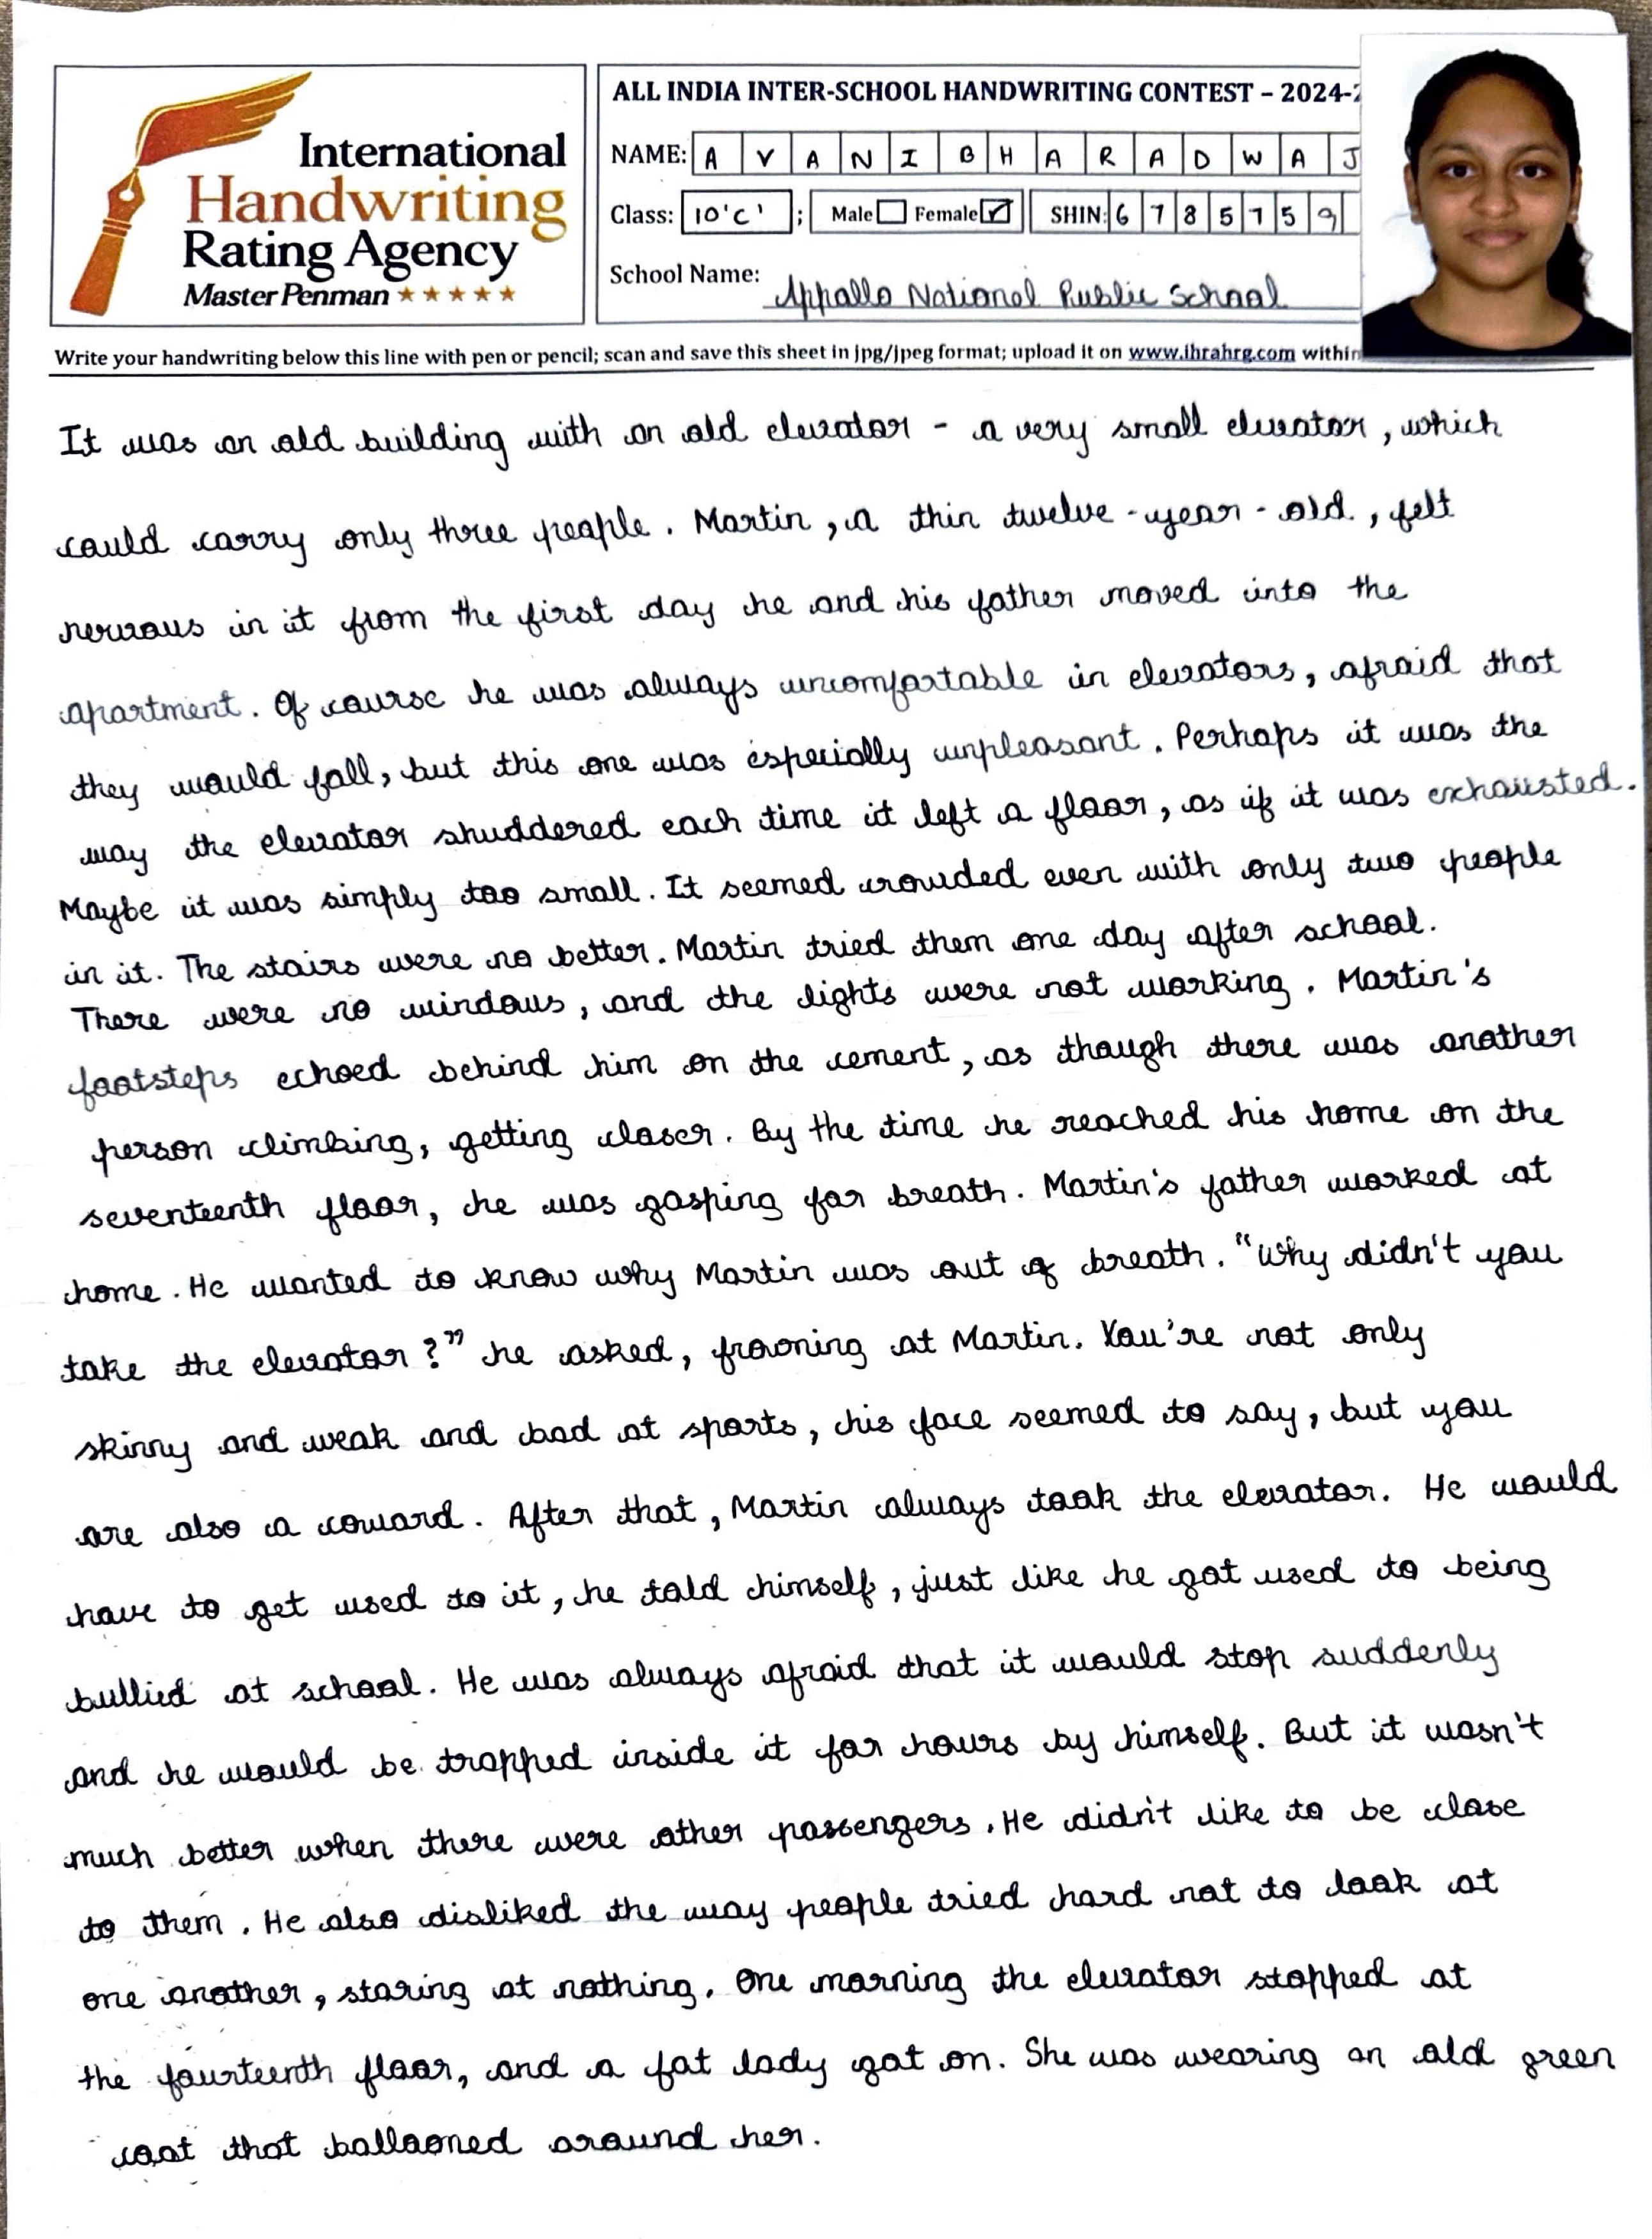 International
Handwriting
Rating Agency
Master Penman
ALL INDIA INTER-SCHOOL HANDWRITING CONTEST – 2024-
NAME: AVANI BHARADWAJ
Class: 10'C' ; Male Female SHIN: 6785759
School Name: Appallo National Public School
Write your handwriting below this line with pen or pencil; scan and save this sheet in jpg/jpeg format; upload it on www.ihrahrg.com within
It was an old building with an old elevator - a very small elevator, which
could carry only three people. Martin, a thin twelve-year-old, felt
nervous in it from the first day he and his father moved into the
apartment. Of course he was always uncomfortable in elevators, afraid that
they would fall, but this one was especially unpleasant. Perhaps it was the
way the elevator shuddered each time it left a floor, as if it was exhausted.
Maybe it was simply too small. It seemed crowded even with only two people
in it. The stairs were no better. Martin tried them one day after school.
There were no windows, and the lights were not working. Martin's
footsteps echoed behind him on the cement, as though there was another
person climbing, getting closer. By the time he reached his home on the
seventeenth floor, he was gasping for breath. Martin's father worked at
home. He wanted to know why Martin was out of breath. "Why didn't you
take the elevator?" he asked, frowning at Martin. You're not only
skinny and weak and bad at sports, his face seemed to say, but you
are also a coward. After that, Martin always took the elevator. He would
have to get used to it, he told himself, just like he got used to being
bullied at school. He was always afraid that it would stop suddenly
and he would be trapped inside it for hours by himself. But it wasn't
much better when there were other passengers. He didn't like to be close
to them. He also disliked the way people tried hard not to look at
one another, staring at nothing. One morning the elevator stopped at
the fourteenth floor, and a fat lady got on. She was wearing an old green
coat that ballooned around her.